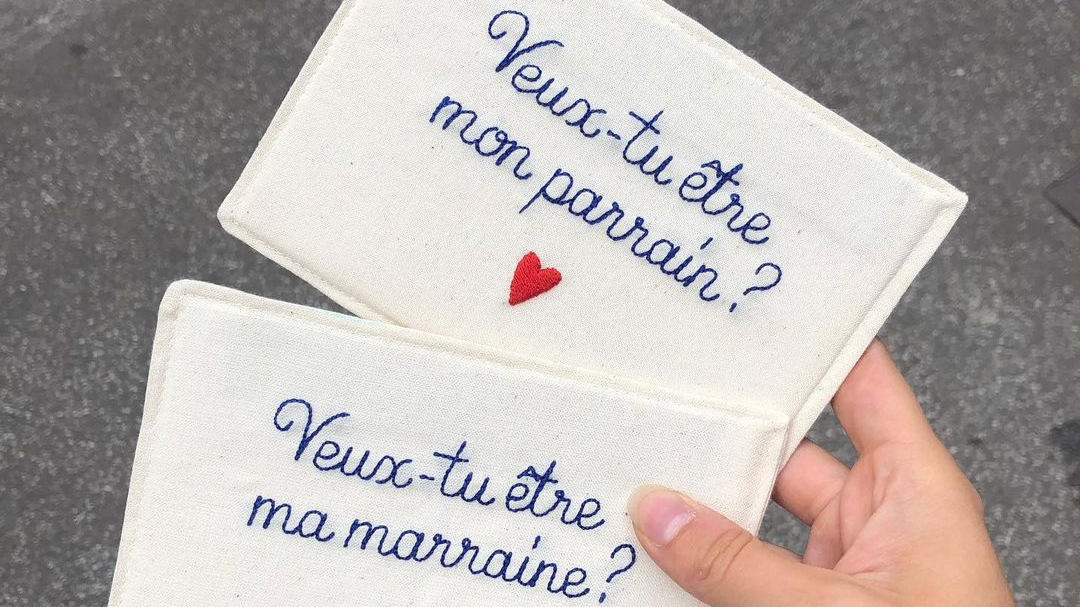 Veux-tu être
mon parrain ?
Veux-tu être
ma marraine ?